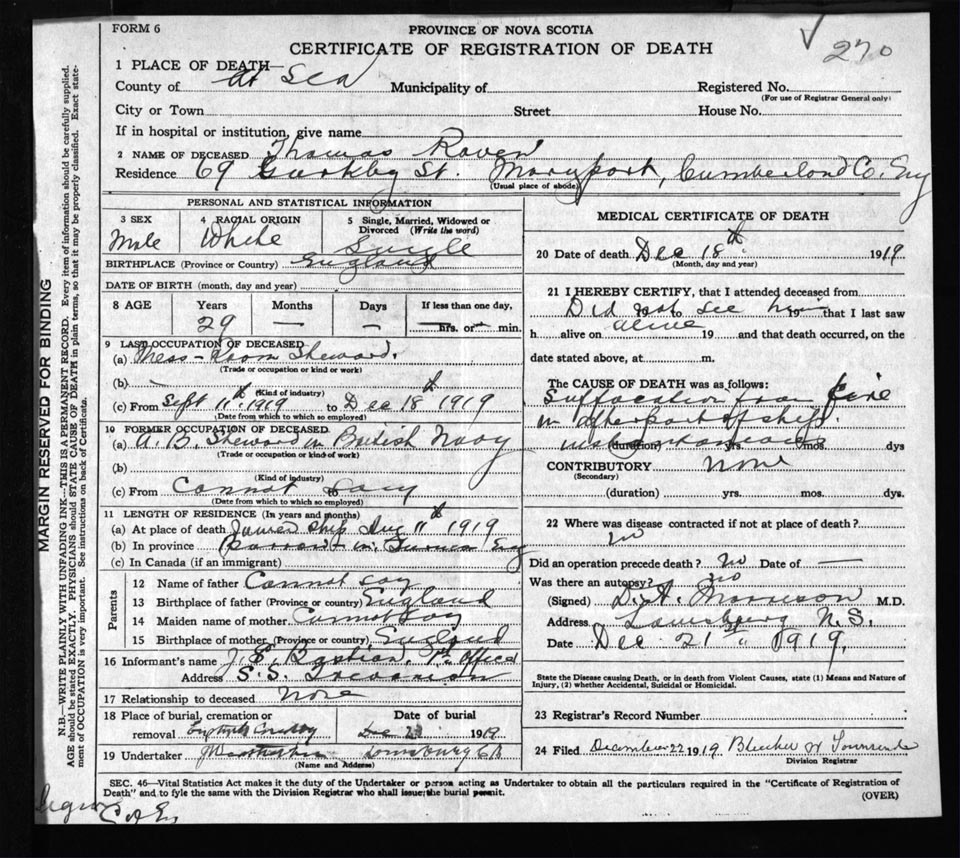 FORM 6
PROVINCE OF NOVA SCOTIA
CERTIFICATE OF REGISTRATION OF DEATH
270
1 PLACE OF DEATH—
County of At Sea Municipality of Registered No.
(For use of Registrar General only)
City or Town Street House No.
If in hospital or institution, give name
2 NAME OF DECEASED Thomas Raven
Residence 69 St. Maryport, Cumberland Co. Eng
(Usual place of abode)
PERSONAL AND STATISTICAL INFORMATION
3 SEX 4 RACIAL ORIGIN 5 Single, Married, Widowed or Divorced (Write the word)
Male White Single
BIRTHPLACE (Province or Country) England
DATE OF BIRTH (month, day and year)
8 AGE Years Months Days If less than one day,
29 — — hrs. or min.
9 LAST OCCUPATION OF DECEASED
(a) Mess-room Steward.
(Trade or occupation or kind or work)
(b)
(Kind of industry)
(c) From Sept 11th 1919 to Dec 18th 1919
(Date from which to which so employed)
10 FORMER OCCUPATION OF DECEASED
(a) A. B. Steward in British Navy
(Trade or occupation or kind of work)
(b)
(Kind of industry)
(c) From Cannot say
(Date from which to which so employed)
11 LENGTH OF RESIDENCE (In years and months)
(a) At place of death Joined ship Aug 11th 1919
(b) In province Barrow in Furness Eng
(c) In Canada (if an immigrant)
Parents
12 Name of father Cannot say
13 Birthplace of father (Province or country) England
14 Maiden name of mother Cannot say
15 Birthplace of mother (Province or country) England
16 Informant's name Bastian, 1st Officer
Address S. S.
17 Relationship to deceased None
18 Place of burial, cremation or removal Date of burial
Dec 1919
19 Undertaker Louisburg CB
(Name and Address)
MEDICAL CERTIFICATE OF DEATH
20 Date of death Dec 18th 1919
(Month, day and year)
21 I HEREBY CERTIFY, that I attended deceased from
Did not to see him 19 that I last saw
h alive on alive 19 and that death occurred, on
date stated above, at m.
The CAUSE OF DEATH was as follows:
Suffocation from fire
in other part of ship.
instantaneous (duration) yrs. mos. dys
CONTRIBUTORY None
(Secondary)
(duration) yrs. mos. dys.
22 Where was disease contracted if not at place of death?
no
Did an operation precede death? no Date of —
Was there an autopsy? no
(Signed) D. A. Morrison M.D.
Address Louisburg N. S.
Date Dec 21st 1919.
State the Disease causing Death, or in death from Violent Causes, state (1) Means and Nature of Injury, (2) whether Accidental, Suicidal or Homicidal.
23 Registrar's Record Number
24 Filed December 22 1919 Bleeker W Townsend
Division Registrar
SEC. 46—Vital Statistics Act makes it the duty of the Undertaker or person acting as Undertaker to obtain all the particulars required in the "Certificate of Registration of
Death" and to fyle the same with the Division Registrar who shall issue the burial permit.
(OVER)
MARGIN RESERVED FOR BINDING
N.B.—WRITE PLAINLY WITH UNFADING INK—THIS IS A PERMANENT RECORD. Every item of information should be carefully supplied.
AGE should be stated EXACTLY. PHYSICIANS should STATE CAUSE OF DEATH in plain terms, so that it may be properly classified. Exact state-
ment of OCCUPATION is very important. See instructions on back of Certificate.